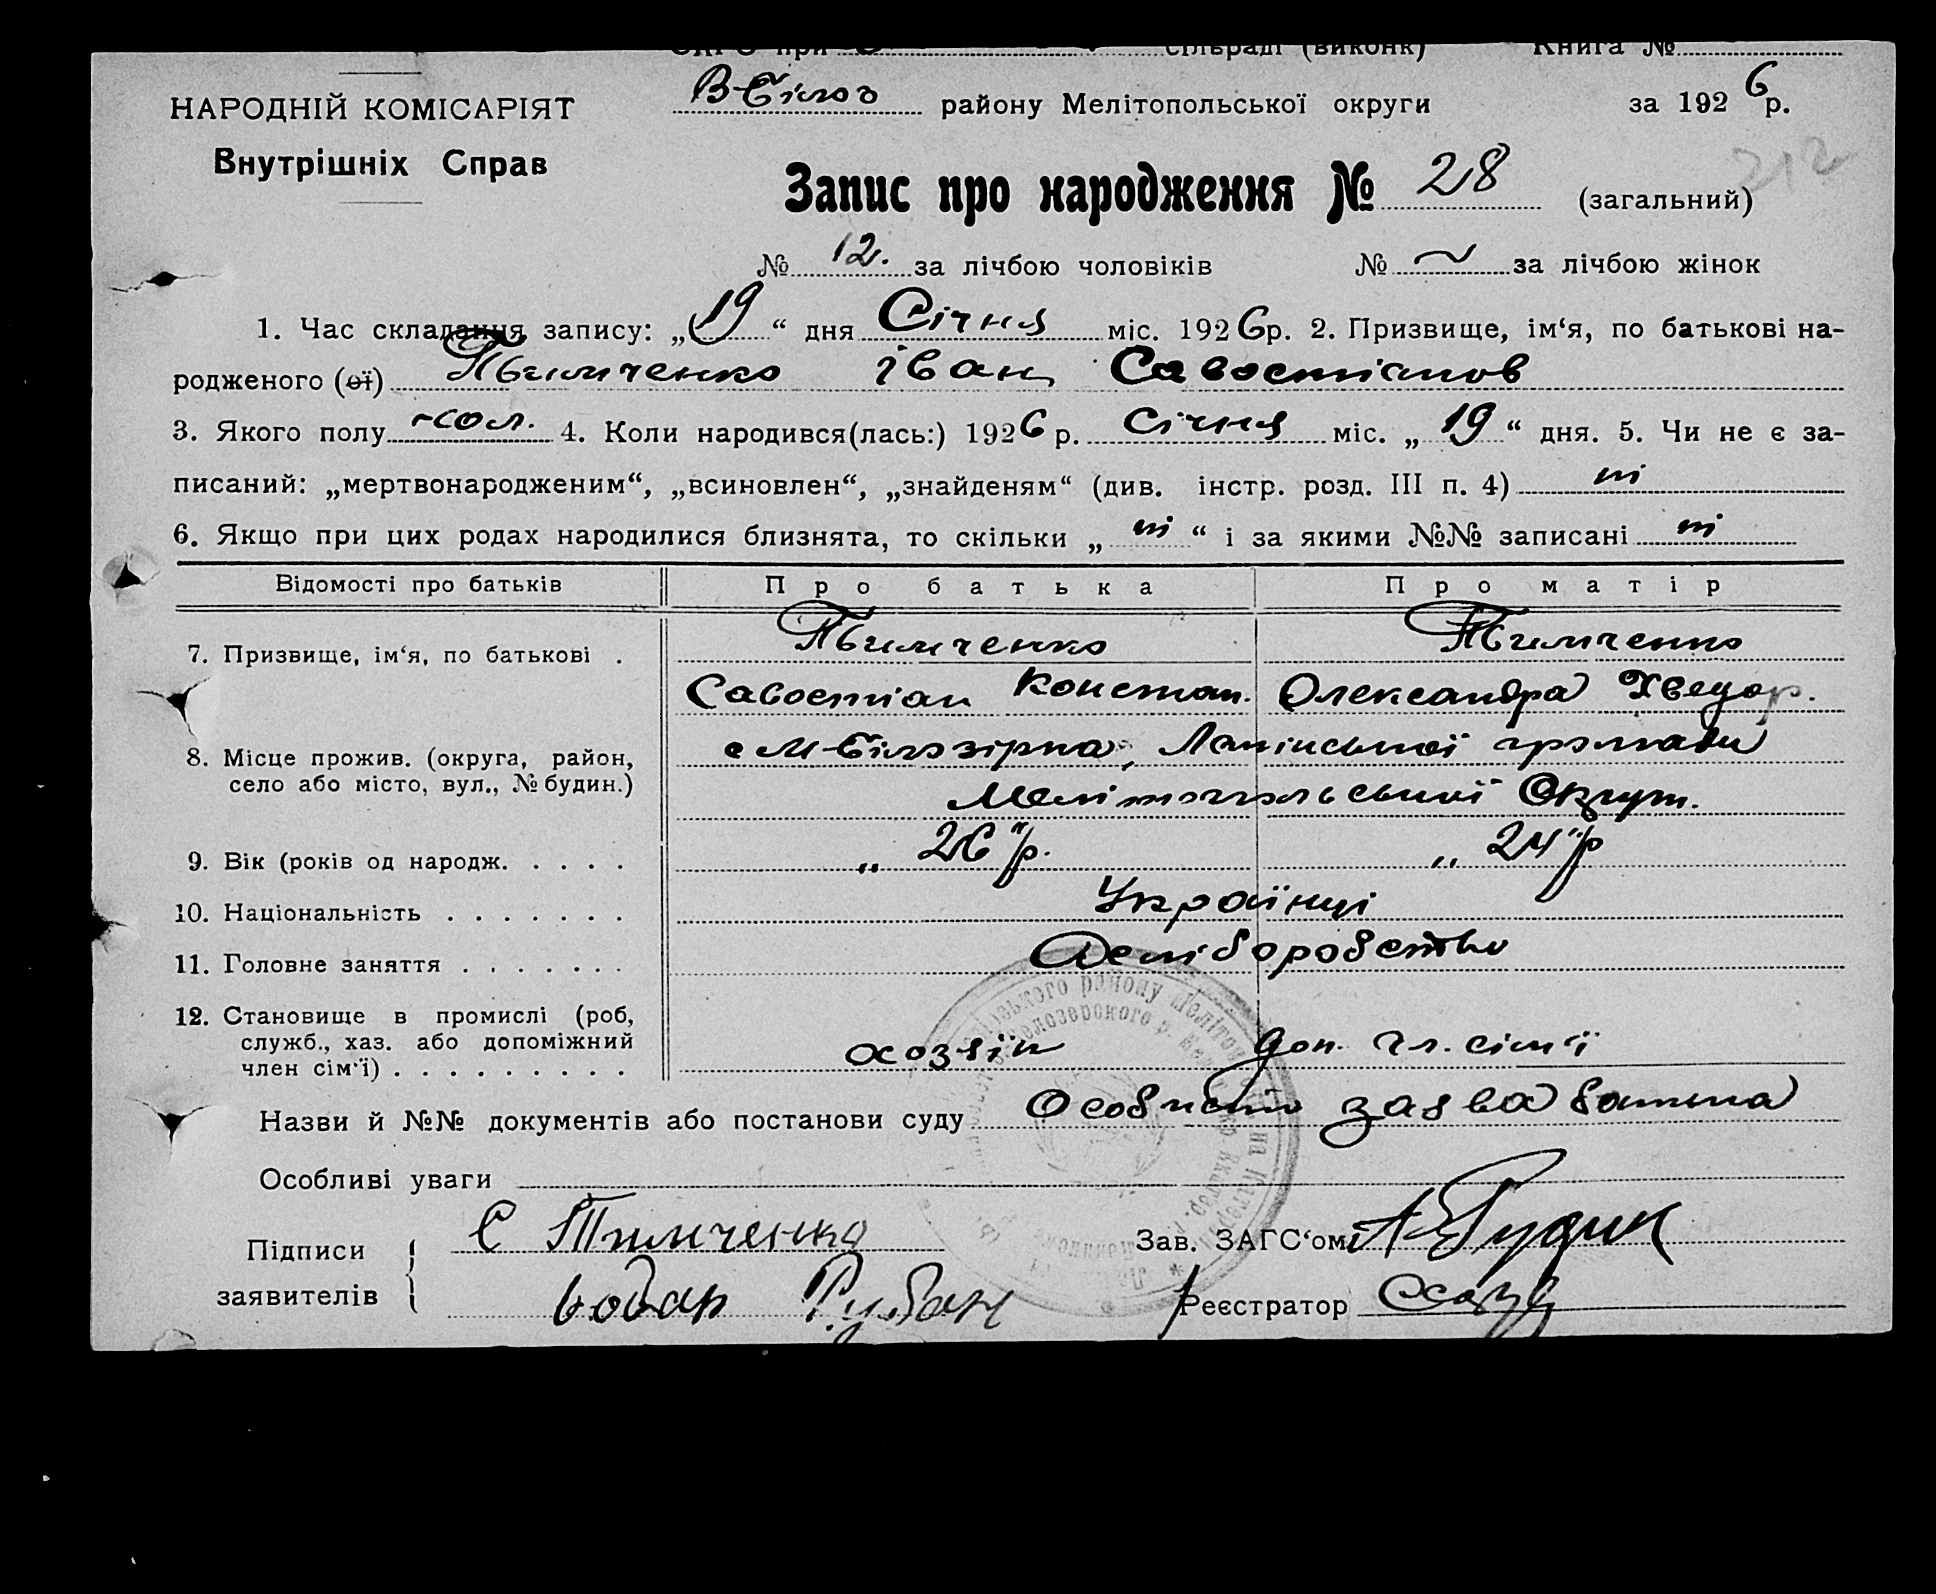 сільраді (виконк) Книга №
НАРОДНІЙ КОМІСАРІЯТ
Внутрішніх Справ
В-Білоз району Мелітопольської округи за 1926 р.
212
Запис про народження № 28 (загальний)
№ 12. за лічбою чоловіків № ~ за лічбою жінок
1. Час складання запису: „19“ дня Січня міс. 1926 р. 2. Призвище, ім‘я, по батькові на-
родженого (ої) Тимченко Іван Савостіянов
3. Якого полу чол. 4. Коли народився(лась:) 1926 р. Січня міс. „19“ дня. 5. Чи не є за-
писаний: „мертвонародженим“, „всиновлен“, „знайденям“ (див. інстр. розд. III п. 4) ні
6. Якщо при цих родах народилися близнята, то скільки „ні“ і за якими №№ записані ні
Відомості про батьків Про батька Про матір
7. Призвище, ім‘я, по батькові . Тимченко Тимченко
Савостіан Констан. Олександра Хведор.
8. Місце прожив. (округа, район, село або місто, вул., № будин.) с М-Білозірка, громади
Мелітопольської Округи.
9. Вік (років од народж. . . . . „ 26 р. „ 24 р
10. Національність . . . . . . . Українці
11. Головне заняття . . . . . . . Хліборобство
12. Становище в промислі (роб, служб., хаз. або допоміжний член сім‘ї) . . . . . . . . . хозяїн доп. чл. сім'ї
Назви й №№ документів або постанови суду Особиста заява батька
Особливі уваги
Підписи заявителів С Тимченко
Зав. ЗАГС‘ом
Рубан
Реєстратор